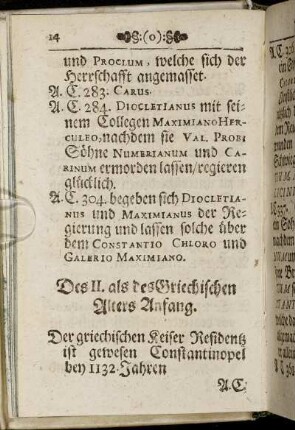 14 :(o):
und PROCLUM, welche sich der
Herrschafft angemasset.
A.C. 283. CARUS.
A.C. 284. DIOCLETIANUS mit sei-
nem Collegen MAXIMIANO HER-
CULEO, nachdem sie VAL. PROBI
Söhne NUMERIANUM und CA-
RINUM ermorden lassen/regieren
glücklich.
A.C. 304. begeben sich DIOCLETIA-
NUS und MAXIMIANUS der Re-
gierung und lassen solche über
dem CONSTANTIO CHLORO und
GALERIO MAXIMIANO.
Des II. als des Griechischen
Alters Anfang.
Der griechischen Keiser Residentz
ist gewesen Constantinopel
bey 1132. Jahren
A.C.